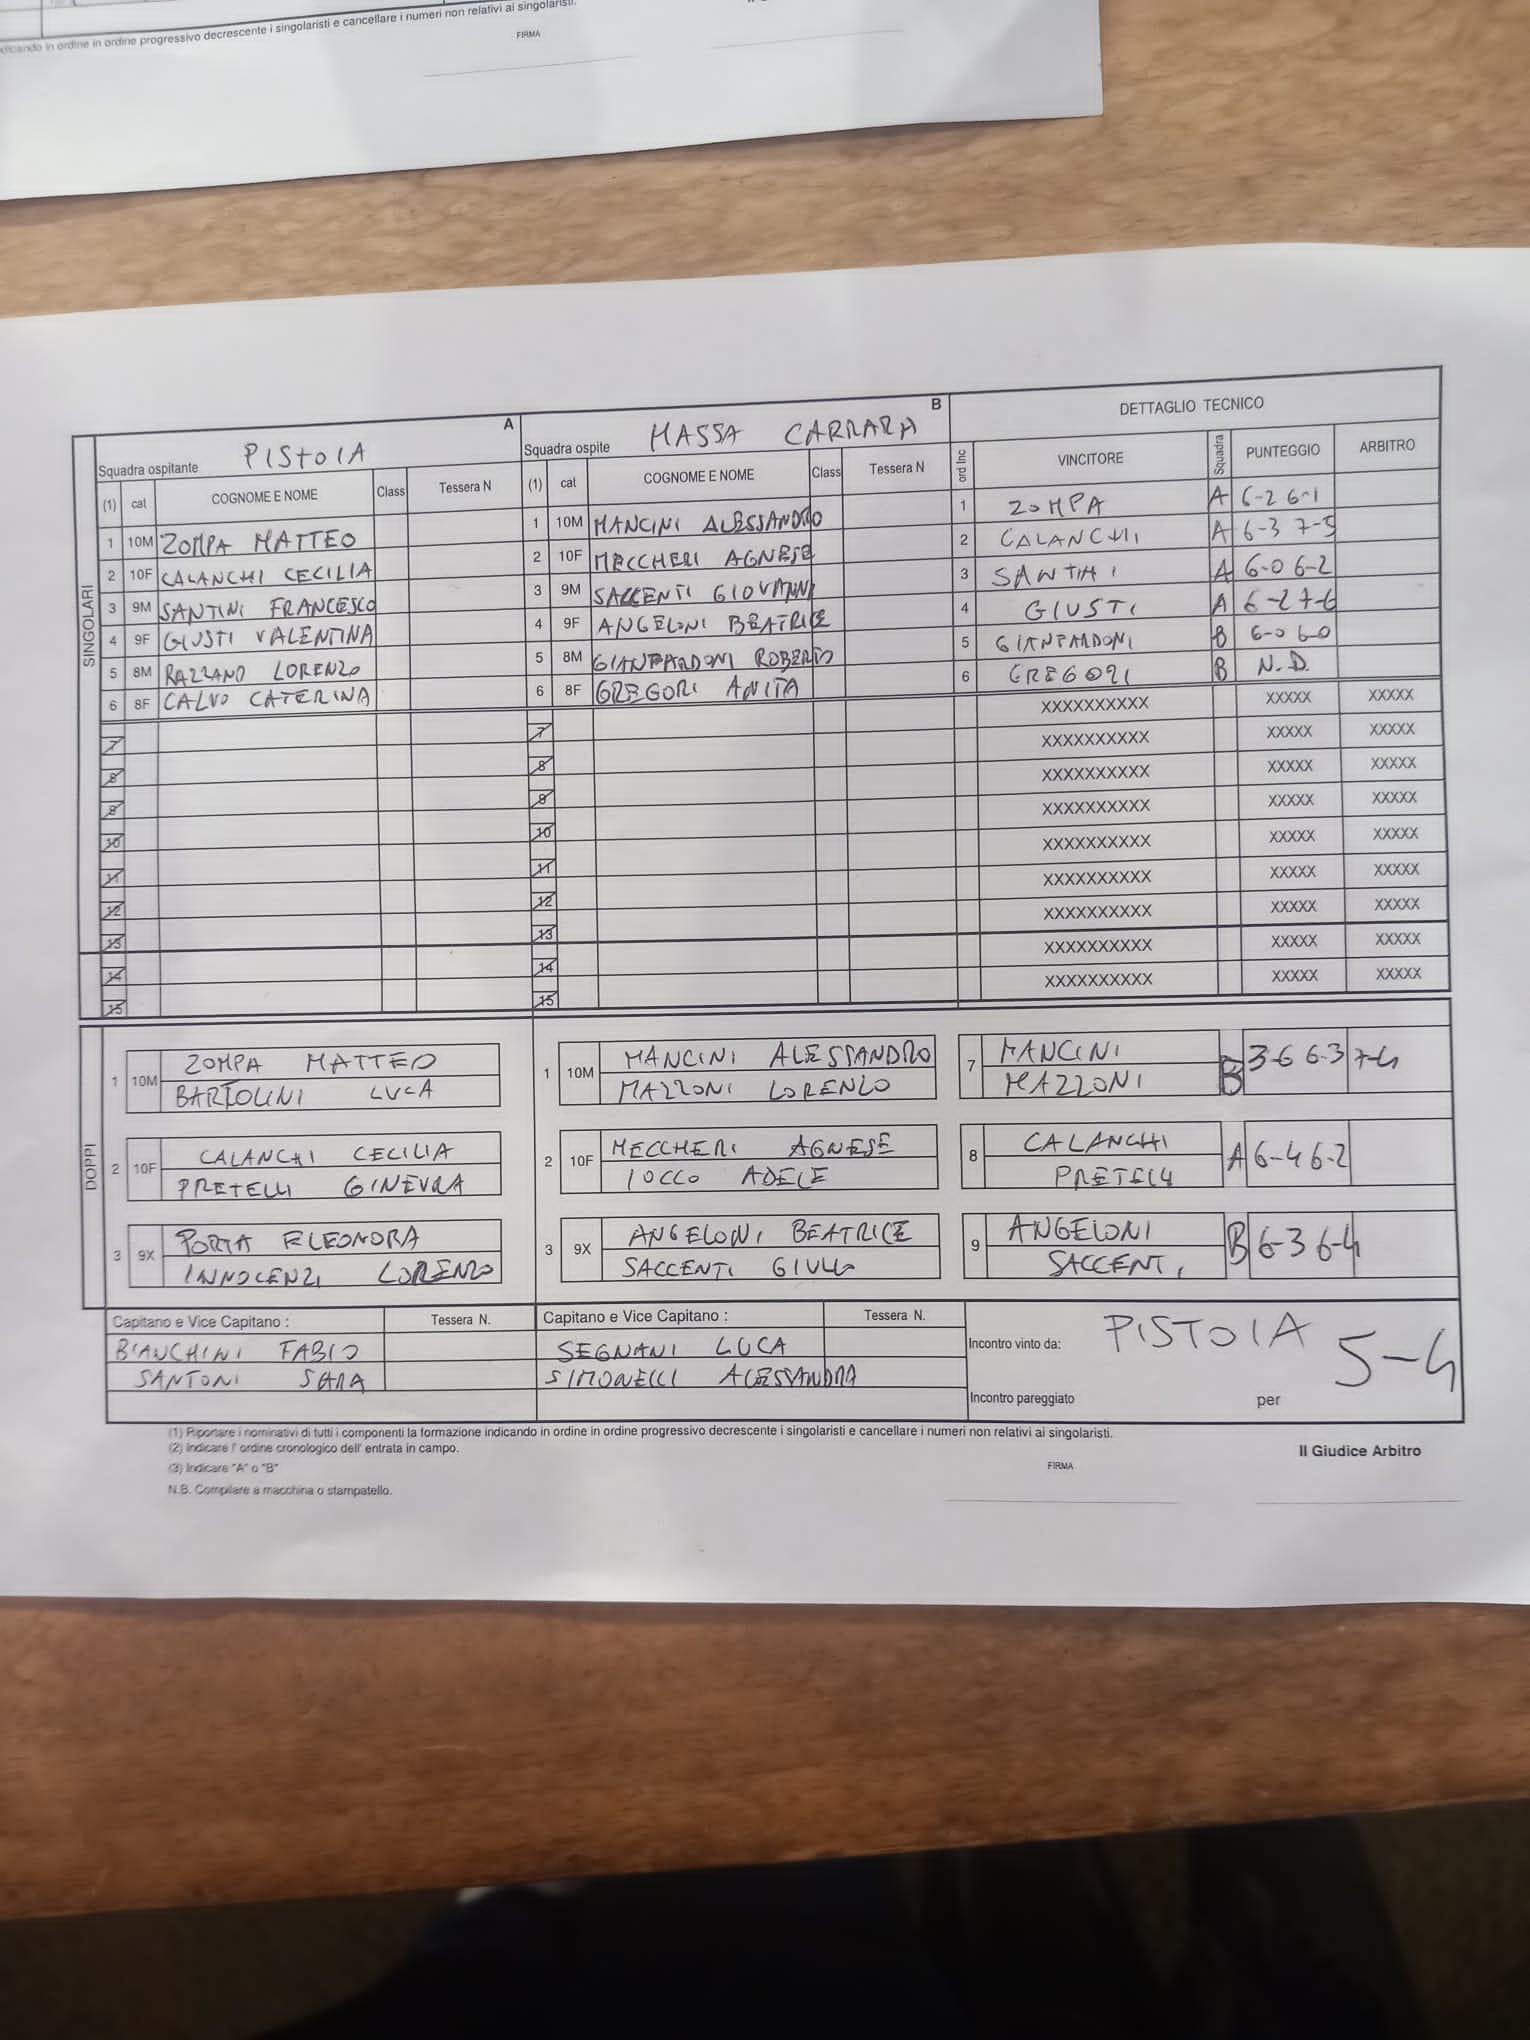 indicando in ordine in ordine progressivo decrescente i singolaristi e cancellare i numeri non relativi ai singolaristi.
FIRMA
A B DETTAGLIO TECNICO
Squadra ospitante PISTOIA Squadra ospite MASSA CARRARA
(1) cat COGNOME E NOME Class Tessera N (1) cat COGNOME E NOME Class Tessera N ord Inc VINCITORE Squadra PUNTEGGIO ARBITRO
SINGOLARI
1 10M ZOMPA MATTEO 1 10M MANCINI ALESSANDRO 1 ZOMPA A 6-2 6-1
2 10F CALANCHI CECILIA 2 10F MECCHERI AGNESE 2 CALANCHI A 6-3 7-5
3 9M SANTINI FRANCESCO 3 9M SACCENTI GIOVANNI 3 SANTINI A 6-0 6-2
4 9F GIUSTI VALENTINA 4 9F ANGELONI BEATRICE 4 GIUSTI A 6-2 7-6
5 8M RAZZANO LORENZO 5 8M GIANPARDONI ROBERTO 5 GIANPARDONI B 6-0 6-0
6 8F CALVO CATERINA 6 8F GREGORI ANITA 6 GREGORI B N.D.
7 7 XXXXXXXXXX XXXXX XXXXX
8 8 XXXXXXXXXX XXXXX XXXXX
9 9 XXXXXXXXXX XXXXX XXXXX
10 10 XXXXXXXXXX XXXXX XXXXX
11 11 XXXXXXXXXX XXXXX XXXXX
12 12 XXXXXXXXXX XXXXX XXXXX
13 13 XXXXXXXXXX XXXXX XXXXX
14 14 XXXXXXXXXX XXXXX XXXXX
15 15 XXXXXXXXXX XXXXX XXXXX
DOPPI
1 10M ZOMPA MATTEO 1 10M MANCINI ALESSANDRO 7 MANCINI B 3-6 6-3 7-4
BARTOLINI LUCA MAZZONI LORENZO MAZZONI
2 10F CALANCHI CECILIA 2 10F MECCHERI AGNESE 8 CALANCHI A 6-4 6-2
PRETELLI GINEVRA IOCCO ADELE PRETELLI
3 9X PORTA ELEONORA 3 9X ANGELONI BEATRICE 9 ANGELONI B 6-3 6-4
INNOCENZI LORENZO SACCENTI GIULIO SACCENTI
Capitano e Vice Capitano : Tessera N. Capitano e Vice Capitano : Tessera N.
BIANCHINI FABIO SEGNANI LUCA Incontro vinto da: PISTOIA 5-4
SANTONI SARA SIMONELLI ALESSANDRA
Incontro pareggiato per
(1) Riportare i nominativi di tutti i componenti la formazione indicando in ordine in ordine progressivo decrescente i singolaristi e cancellare i numeri non relativi ai singolaristi.
(2) Indicare l' ordine cronologico dell' entrata in campo.
(3) Indicare "A" o "B"
FIRMA Il Giudice Arbitro
N.B. Compilare a macchina o stampatello.